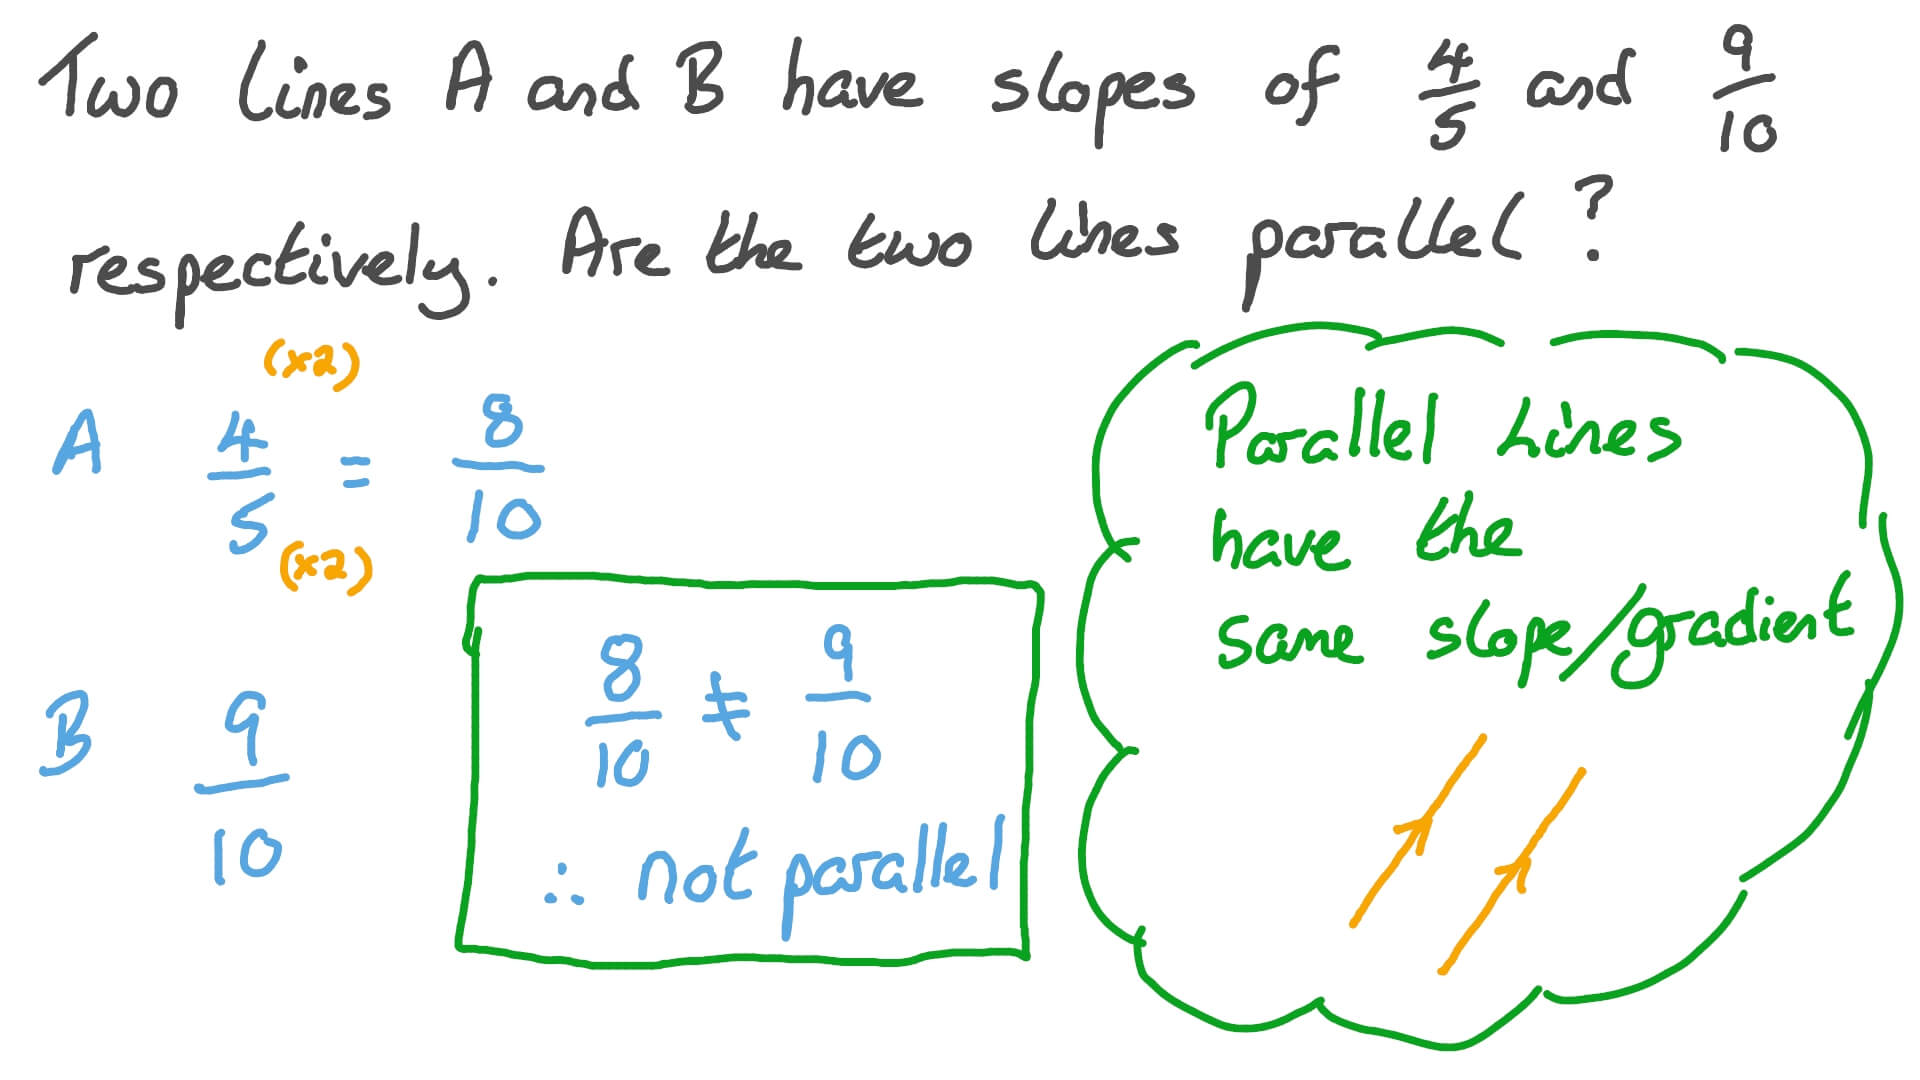 Two lines A and B have slopes of 4/5 and 9/10
respectively. Are the two lines parallel?
(x2)
A 4/5 = 8/10
(x2)
B 9/10
8/10 ≠ 9/10
∴ not parallel
Parallel Lines
have the
same slope/gradient